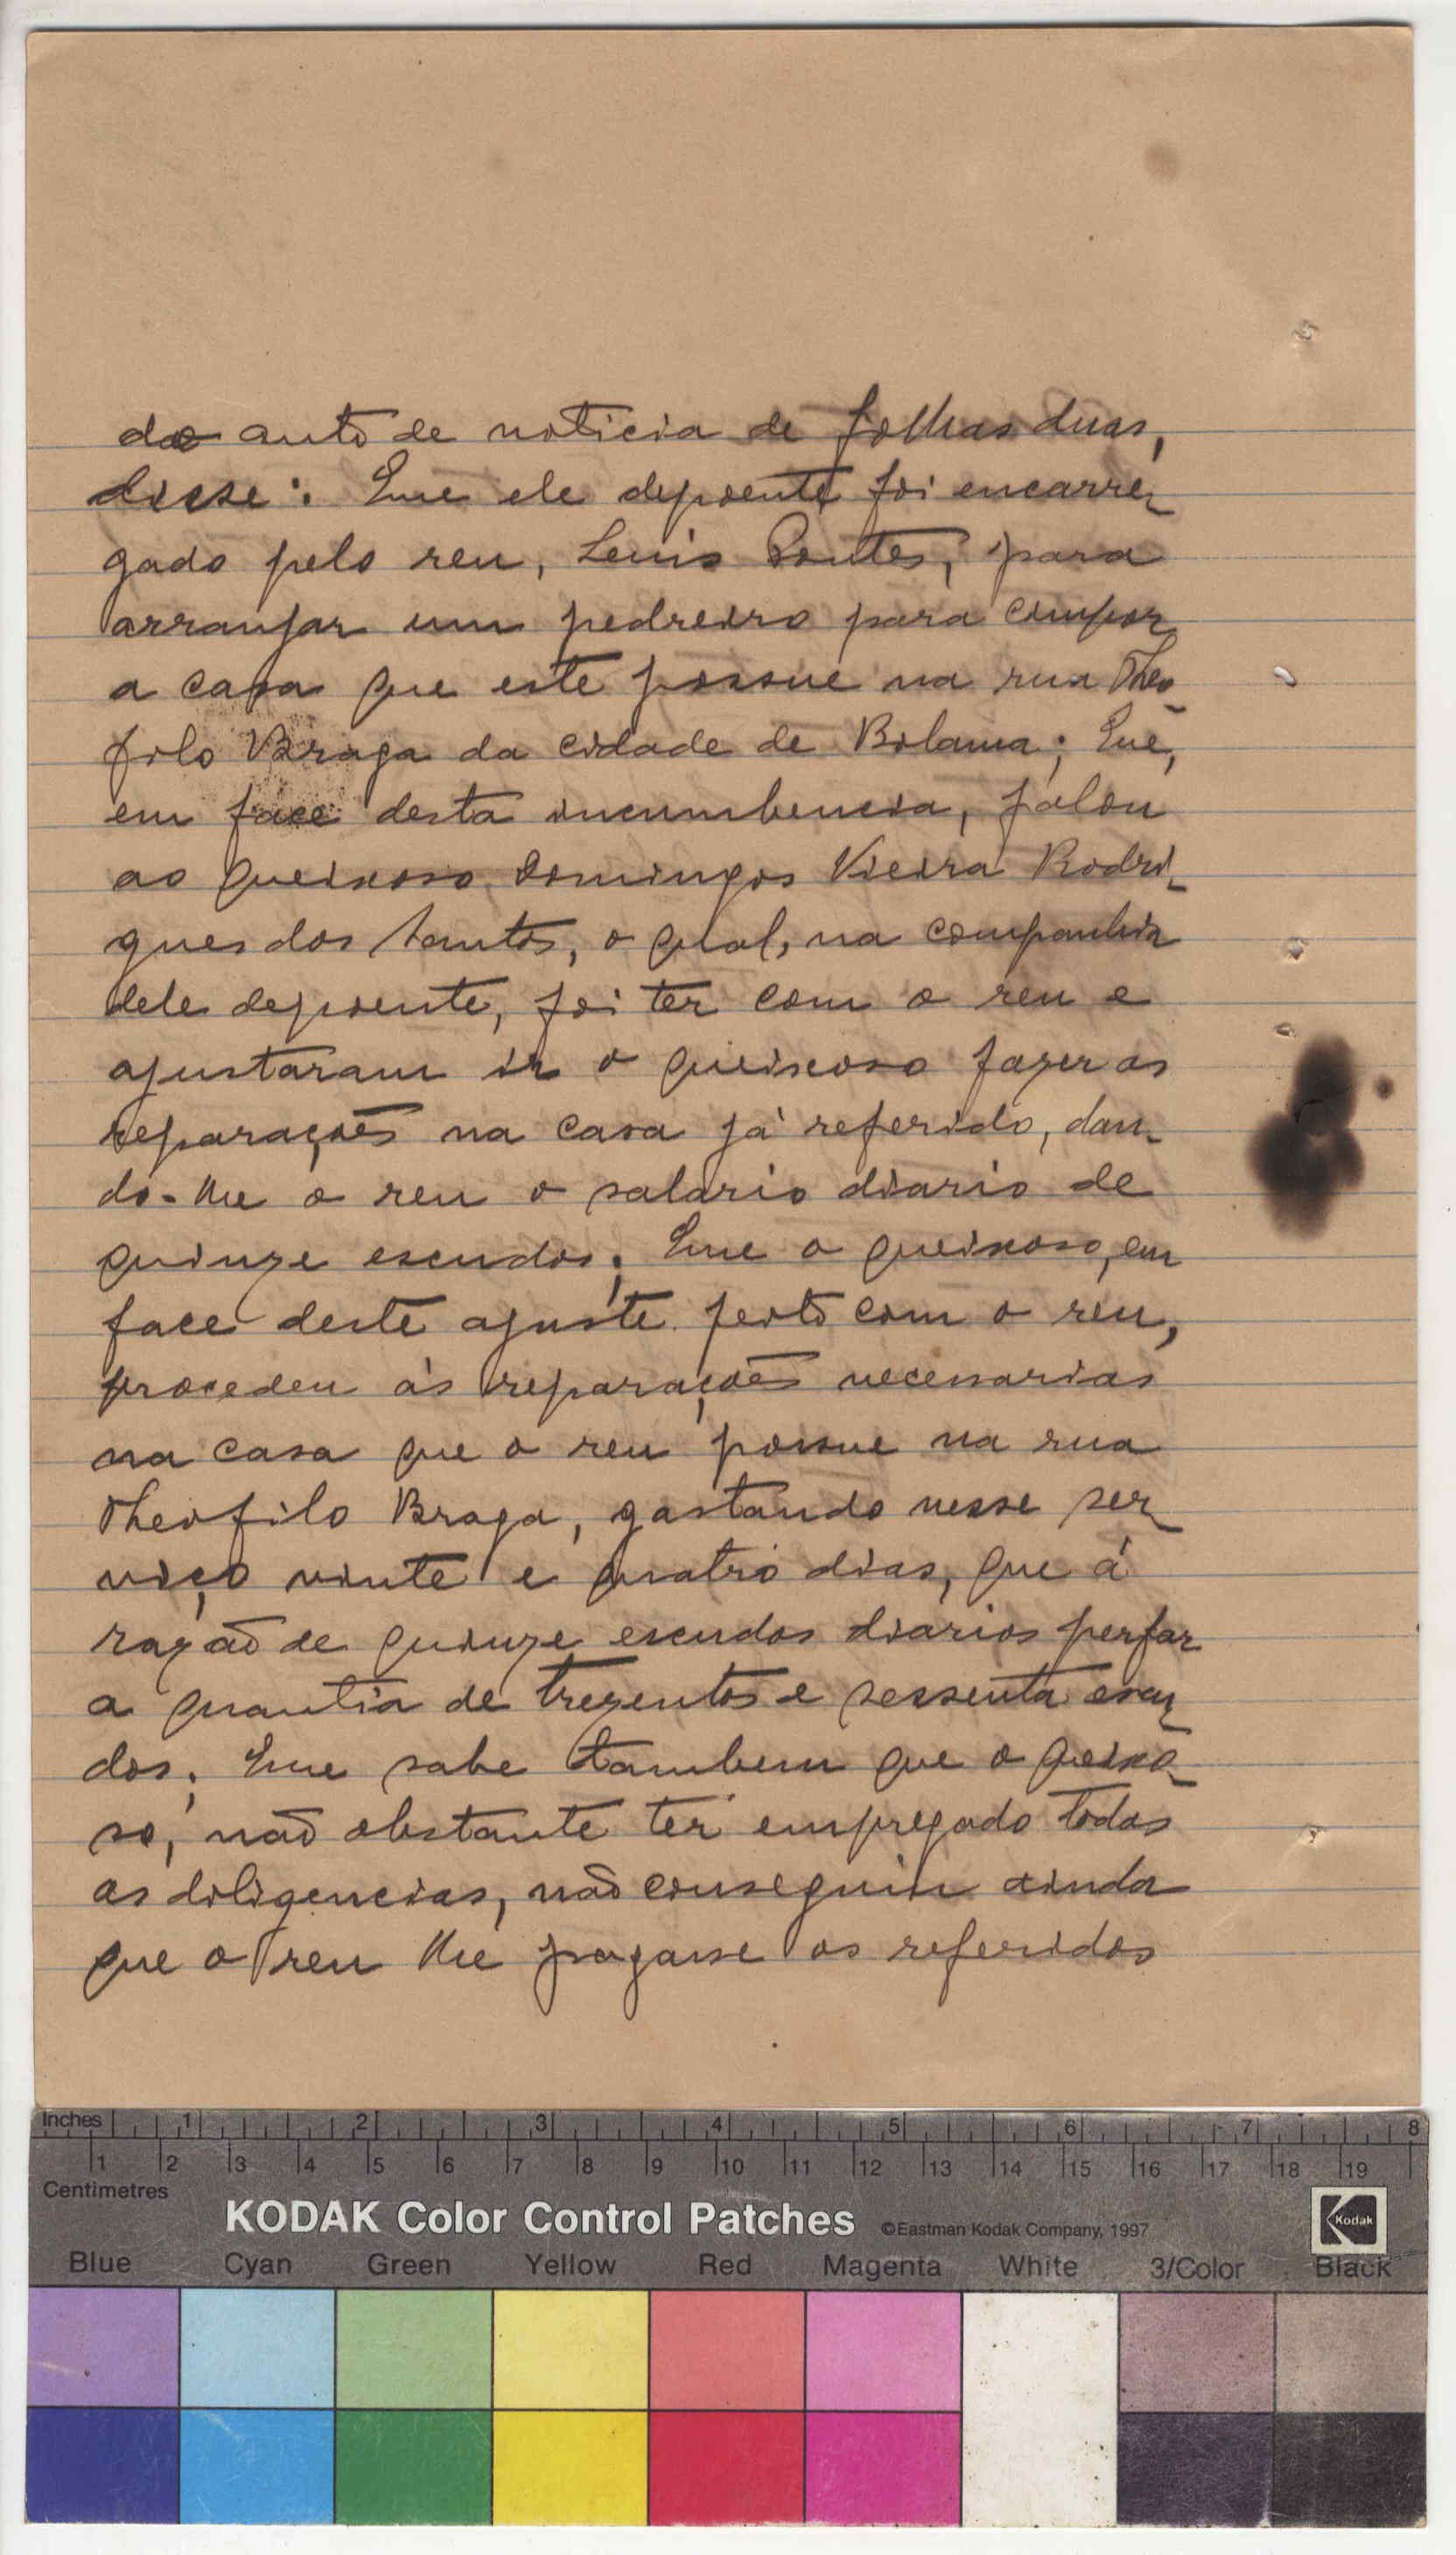 do auto de noticia de folhas duas,
disse: Que ele depoente foi encarre-
gado pelo reu, Luis Pontes, para
arranjar um pedreiro para compor
a casa que este possue na rua Theo-
filo Braga da cidade de Bolama; Que,
em face desta incumbencia, falou
ao queixoso Domingos Vieira Rodri-
gues dos Santos, o qual, na companhia
dele depoente, foi ter com o reu e
ajustaram ir o queixoso fazer as
reparações na casa já referido, dan-
do-lhe o reu o salario diario de
quinze escudos; Que o queixoso, em
face deste ajuste feito com o reu,
procedeu ás reparações necessarias
na casa que o reu possue na rua
Theofilo Braga, gastando nesse ser-
viço vinte e quatro dias, que á
razão de quinze escudos diarios perfaz
a quantia de trezentos e sessenta escu-
dos; Que sabe tambem que o queixo-
so, não obstante ter empregado todas
as diligencias, não conseguiu ainda
que o reu lhe pagasse os referidos
Inches 1 2 3 4 5 6 7 8
1 2 3 4 5 6 7 8 9 10 11 12 13 14 15 16 17 18 19
Centimetres
KODAK Color Control Patches ©Eastman Kodak Company, 1997 Kodak
Blue Cyan Green Yellow Red Magenta White 3/Color Black